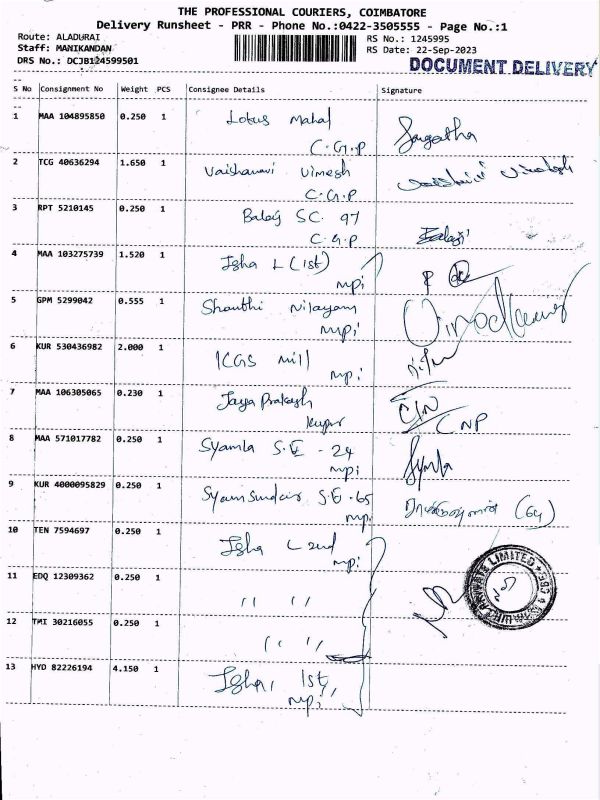 THE PROFESSIONAL COURIERS, COIMBATORE
Delivery Runsheet - PRR - Phone No.:0422-3505555 - Page No.:1
Route: ALADURAI
RS No.: 1245995
Staff: MANIKANDAN
RS Date: 22-Sep-2023
DRS No.: DCJB124599501
DOCUMENT DELIVERY
S No Consignment No Weight PCS Consignee Details Signature
1 MAA 104895850 0.250 1 Lotus Mahal
C.G.P
2 TCG 40636294 1.650 1 Vaishanavi Vimesh
C.G.P
3 RPT 5210145 0.250 1 Balaji SC. 97 Balaji
C.G.P
4 MAA 103275739 1.520 1 Isha L (1st)
mpi
5 GPM 5299042 0.555 1 Shanthi Nilayam
mpi
6 KUR 530436982 2.000 1 ICGS Mill
mpi
7 MAA 106305065 0.230 1 Jaya Prakash
CNP
8 MAA 571017782 0.250 1 Syamla S.E - 24 Symla
mpi
9 KUR 4000095829 0.250 1 Syam Sundar S.E - 65
mpi
10 TEN 7594697 0.250 1 Isha L 2nd
mpi
11 EDQ 12309362 0.250 1 " "
12 TMI 30216055 0.250 1 " "
PRIVATE LIMITED
13 HYD 82226194 4.150 1 Isha, 1st,
mpi